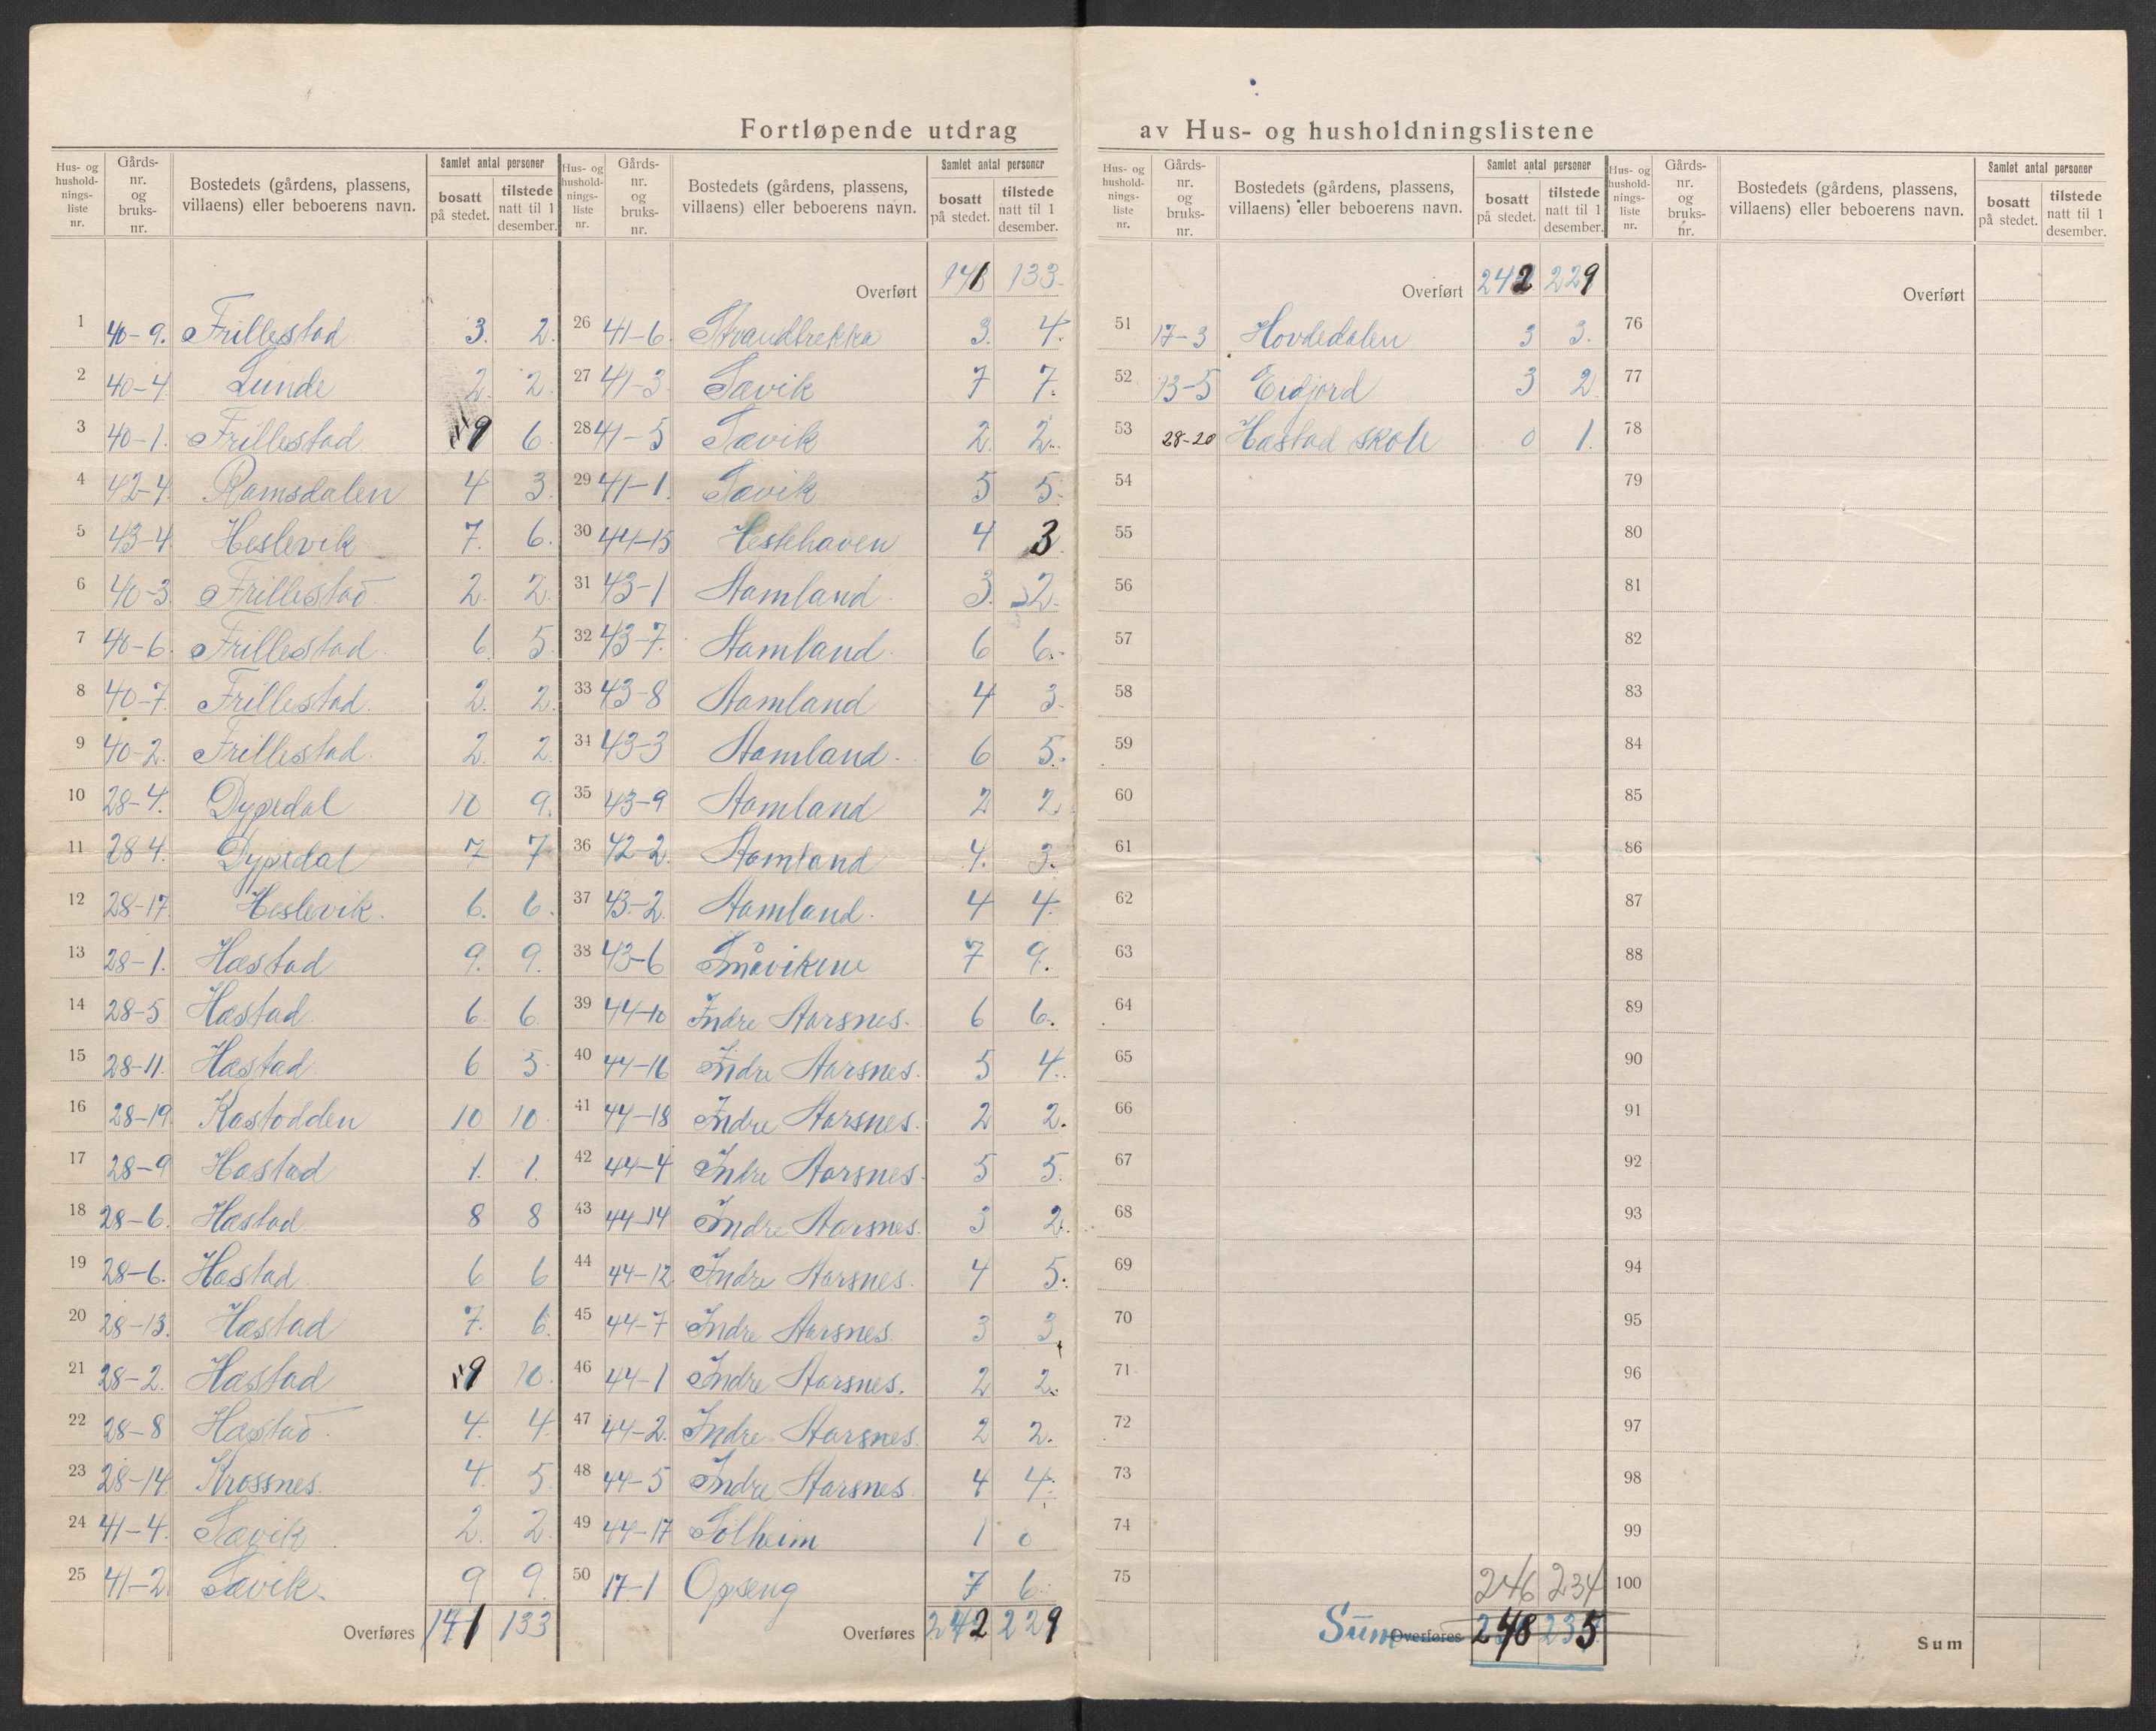 Fortløpende utdrag av Hus- og husholdningslistene
Hus- og husholdnings-liste nr. Gårds-nr. og bruks-nr. Bostedets (gårdens, plassens, villaens) eller beboerens navn. Samlet antal personer bosatt på stedet. tilstede natt til 1 desember.
1 40-9. Frillestad 3. 2.
2 40-4 Lunde 2. 2.
3 40-1. Frillestad 9 6.
4 42-4 Ramsdalen 4 3.
5 43-4 Heslevik 7. 6.
6 40-3 Frillestad 2. 2.
7 40-6. Frillestad 6. 5.
8 40-7 Frillestad. 2. 2.
9 40-2. Frillestad. 2. 2.
10 28-4. Dypedal 10 9.
11 28-4. Dypedal 7 7
12 28-17. Heslevik. 6. 6.
13 28-1. Hæstad 9. 9.
14 28-5 Hæstad. 6. 6.
15 28-11. Hæstad. 6 5.
16 28-19. Kastodden 10 10
17 28-9 Hæstad 1. 1.
18 28-6. Hæstad. 8 8
19 28-6. Hæstad. 6 6
20 28-13. Hæstad 7. 6.
21 28-2. Hæstad 9 10.
22 28-8 Hæstad. 4. 4.
23 28-14. Krossnes. 4. 5.
24 41-4. Sævik. 2. 2.
25 41-2. Sævik. 9 9.
Overføres 141 133
Hus- og husholdnings-liste nr. Gårds-nr. og bruks-nr. Bostedets (gårdens, plassens, villaens) eller beboerens navn. Samlet antal personer bosatt på stedet. tilstede natt til 1 desember.
Overført 141 133.
26 41-6. Strandbrekka 3. 4.
27 41-3. Sævik 7 7.
28 41-5 Sævik 2. 2.
29 41-1. Sævik 5 5.
30 44-15 Hestehaven 4 3.
31 43-1 Hamland. 3. 2.
32 43-7. Hamland. 6 6.
33 43-8 Hamland 4 3.
34 43-3 Hamland. 6 5.
35 43-9 Hamland 2 2.
36 42-2. Hamland 4. 3.
37 43-2. Hamland. 4 4.
38 43-6 Småvikene 7 9.
39 44-10 Indre Aarsnes. 6 6.
40 44-16 Indre Aarsnes. 5 4.
41 44-18 Indre Aarsnes. 2 2.
42 44-4 Indre Aarsnes. 5 5.
43 44-14 Indre Aarsnes. 3 2.
44 44-12. Indre Aarsnes. 4 5.
45 44-7 Indre Aarsnes. 3 3
46 44-1 Indre Aarsnes. 2 2.
47 44-2. Indre Aarsnes. 2 2.
48 44-5 Indre Aarsnes. 4 4.
49 44-17 Solheim 1 0
50 17-1 Opseng 7 6.
Overføres 242 229
Hus- og husholdnings-liste nr. Gårds-nr. og bruks-nr. Bostedets (gårdens, plassens, villaens) eller beboerens navn. Samlet antal personer bosatt på stedet. tilstede natt til 1 desember.
Overført 242 229
51 17-3 Hovdedalen 3 3.
52 13-5 Eidjord 3 2.
53 28-20 Hæstad skole 0 1.
54
55
56
57
58
59
60
61
62
63
64
65
66
67
68
69
70
71
72
73
74
75 246 234
Sum Overføres 248 235
Hus- og husholdnings-liste nr. Gårds-nr. og bruks-nr. Bostedets (gårdens, plassens, villaens) eller beboerens navn. Samlet antal personer bosatt på stedet. tilstede natt til 1 desember.
Overført
76
77
78
79
80
81
82
83
84
85
86
87
88
89
90
91
92
93
94
95
96
97
98
99
100
Sum